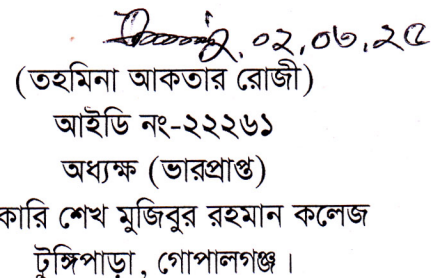 ০২,০৬,২৫
(তহমিনা আকতার রোজী)
আইডি নং-২২২৬১
অধ্যক্ষ (ভারপ্রাপ্ত)
কারি শেখ মুজিবুর রহমান কলেজ
টুঙ্গিপাড়া, গোপালগঞ্জ।